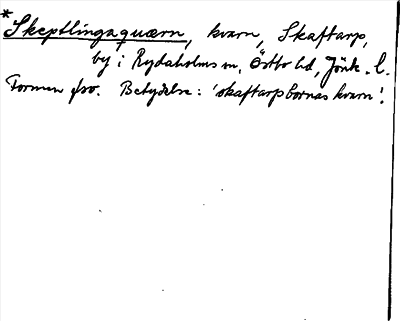 *Skeptlingaquærn, kvarn, Skaftarp,
by i Rydaholms sn, Östbo hd, Jönk. l.
Formen fsv. Betydelse: 'skaftarpbornas kvarn'.